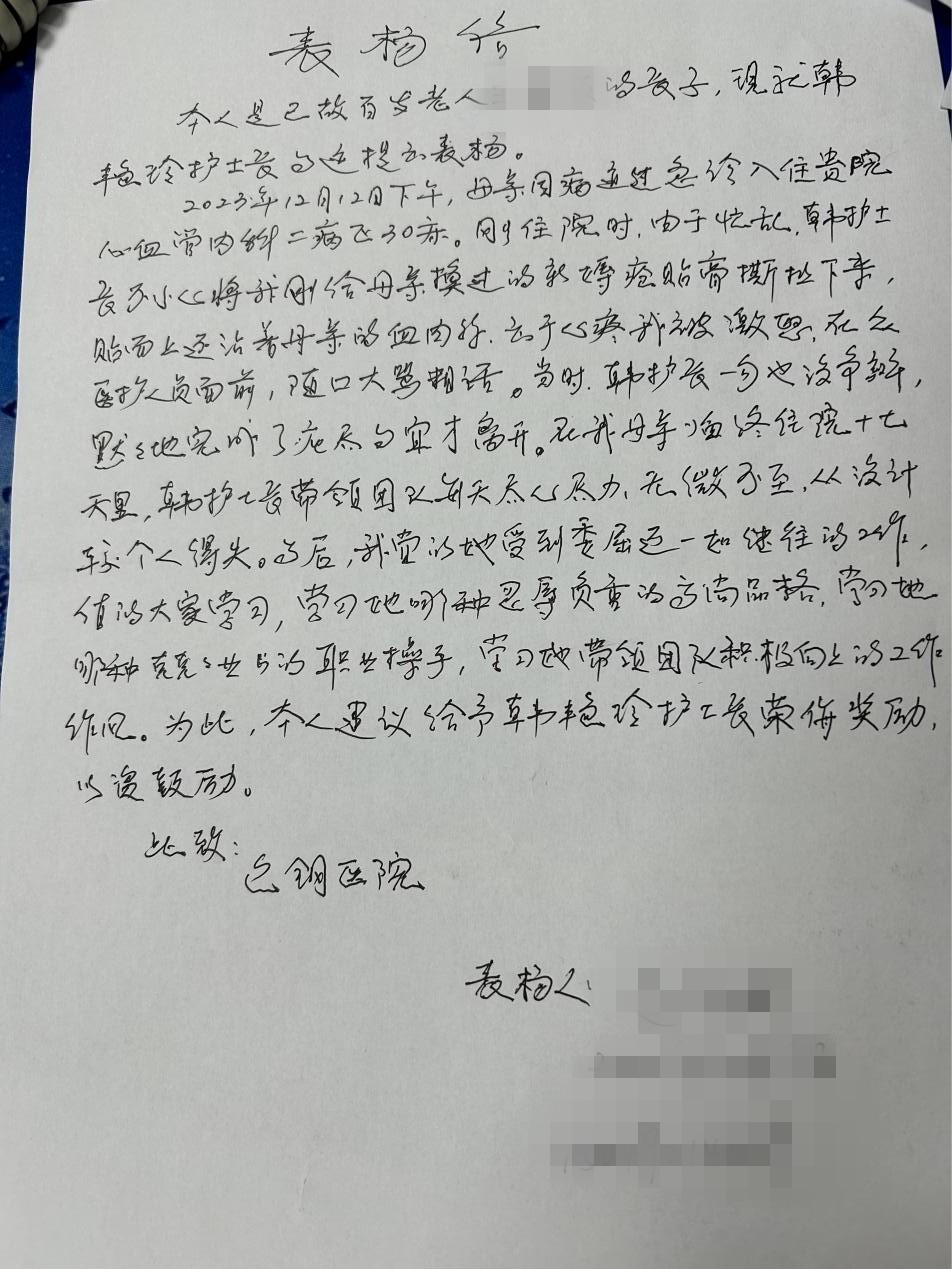 表扬信
本人是已故百岁老人 的长子，现就韩
艳玲护士长事迹提出表扬。
2023年12月12日下午，母亲因病通过急诊入住贵院
心血管内科二病区30床。刚住院时，由于忙乱，韩护士
长不小心将我刚给母亲换过的新褥疮贴膏撕拉下来，
贴面上还沾着母亲的血肉称，出于心疼我被激怒，在众
医护人员面前，随口大骂粗话。当时，韩护长一句也没争辩，
默默地完成了应尽事宜才离开。在我母亲临终住院十七
天里，韩护士长带领团队每天尽心尽力、无微不至，从没计
较个人得失。事后，我觉的她受到委屈还一如继往的工作，
值的大家学习，学习她哪种忍辱负重的高尚品格，学习她
哪种克克业业的职业操守，学习她带领团队积极向上的工作
作风。为此，本人建议给予韩艳玲护士长荣侮奖励，
以资鼓励。
此致：
包钢医院
表扬人：